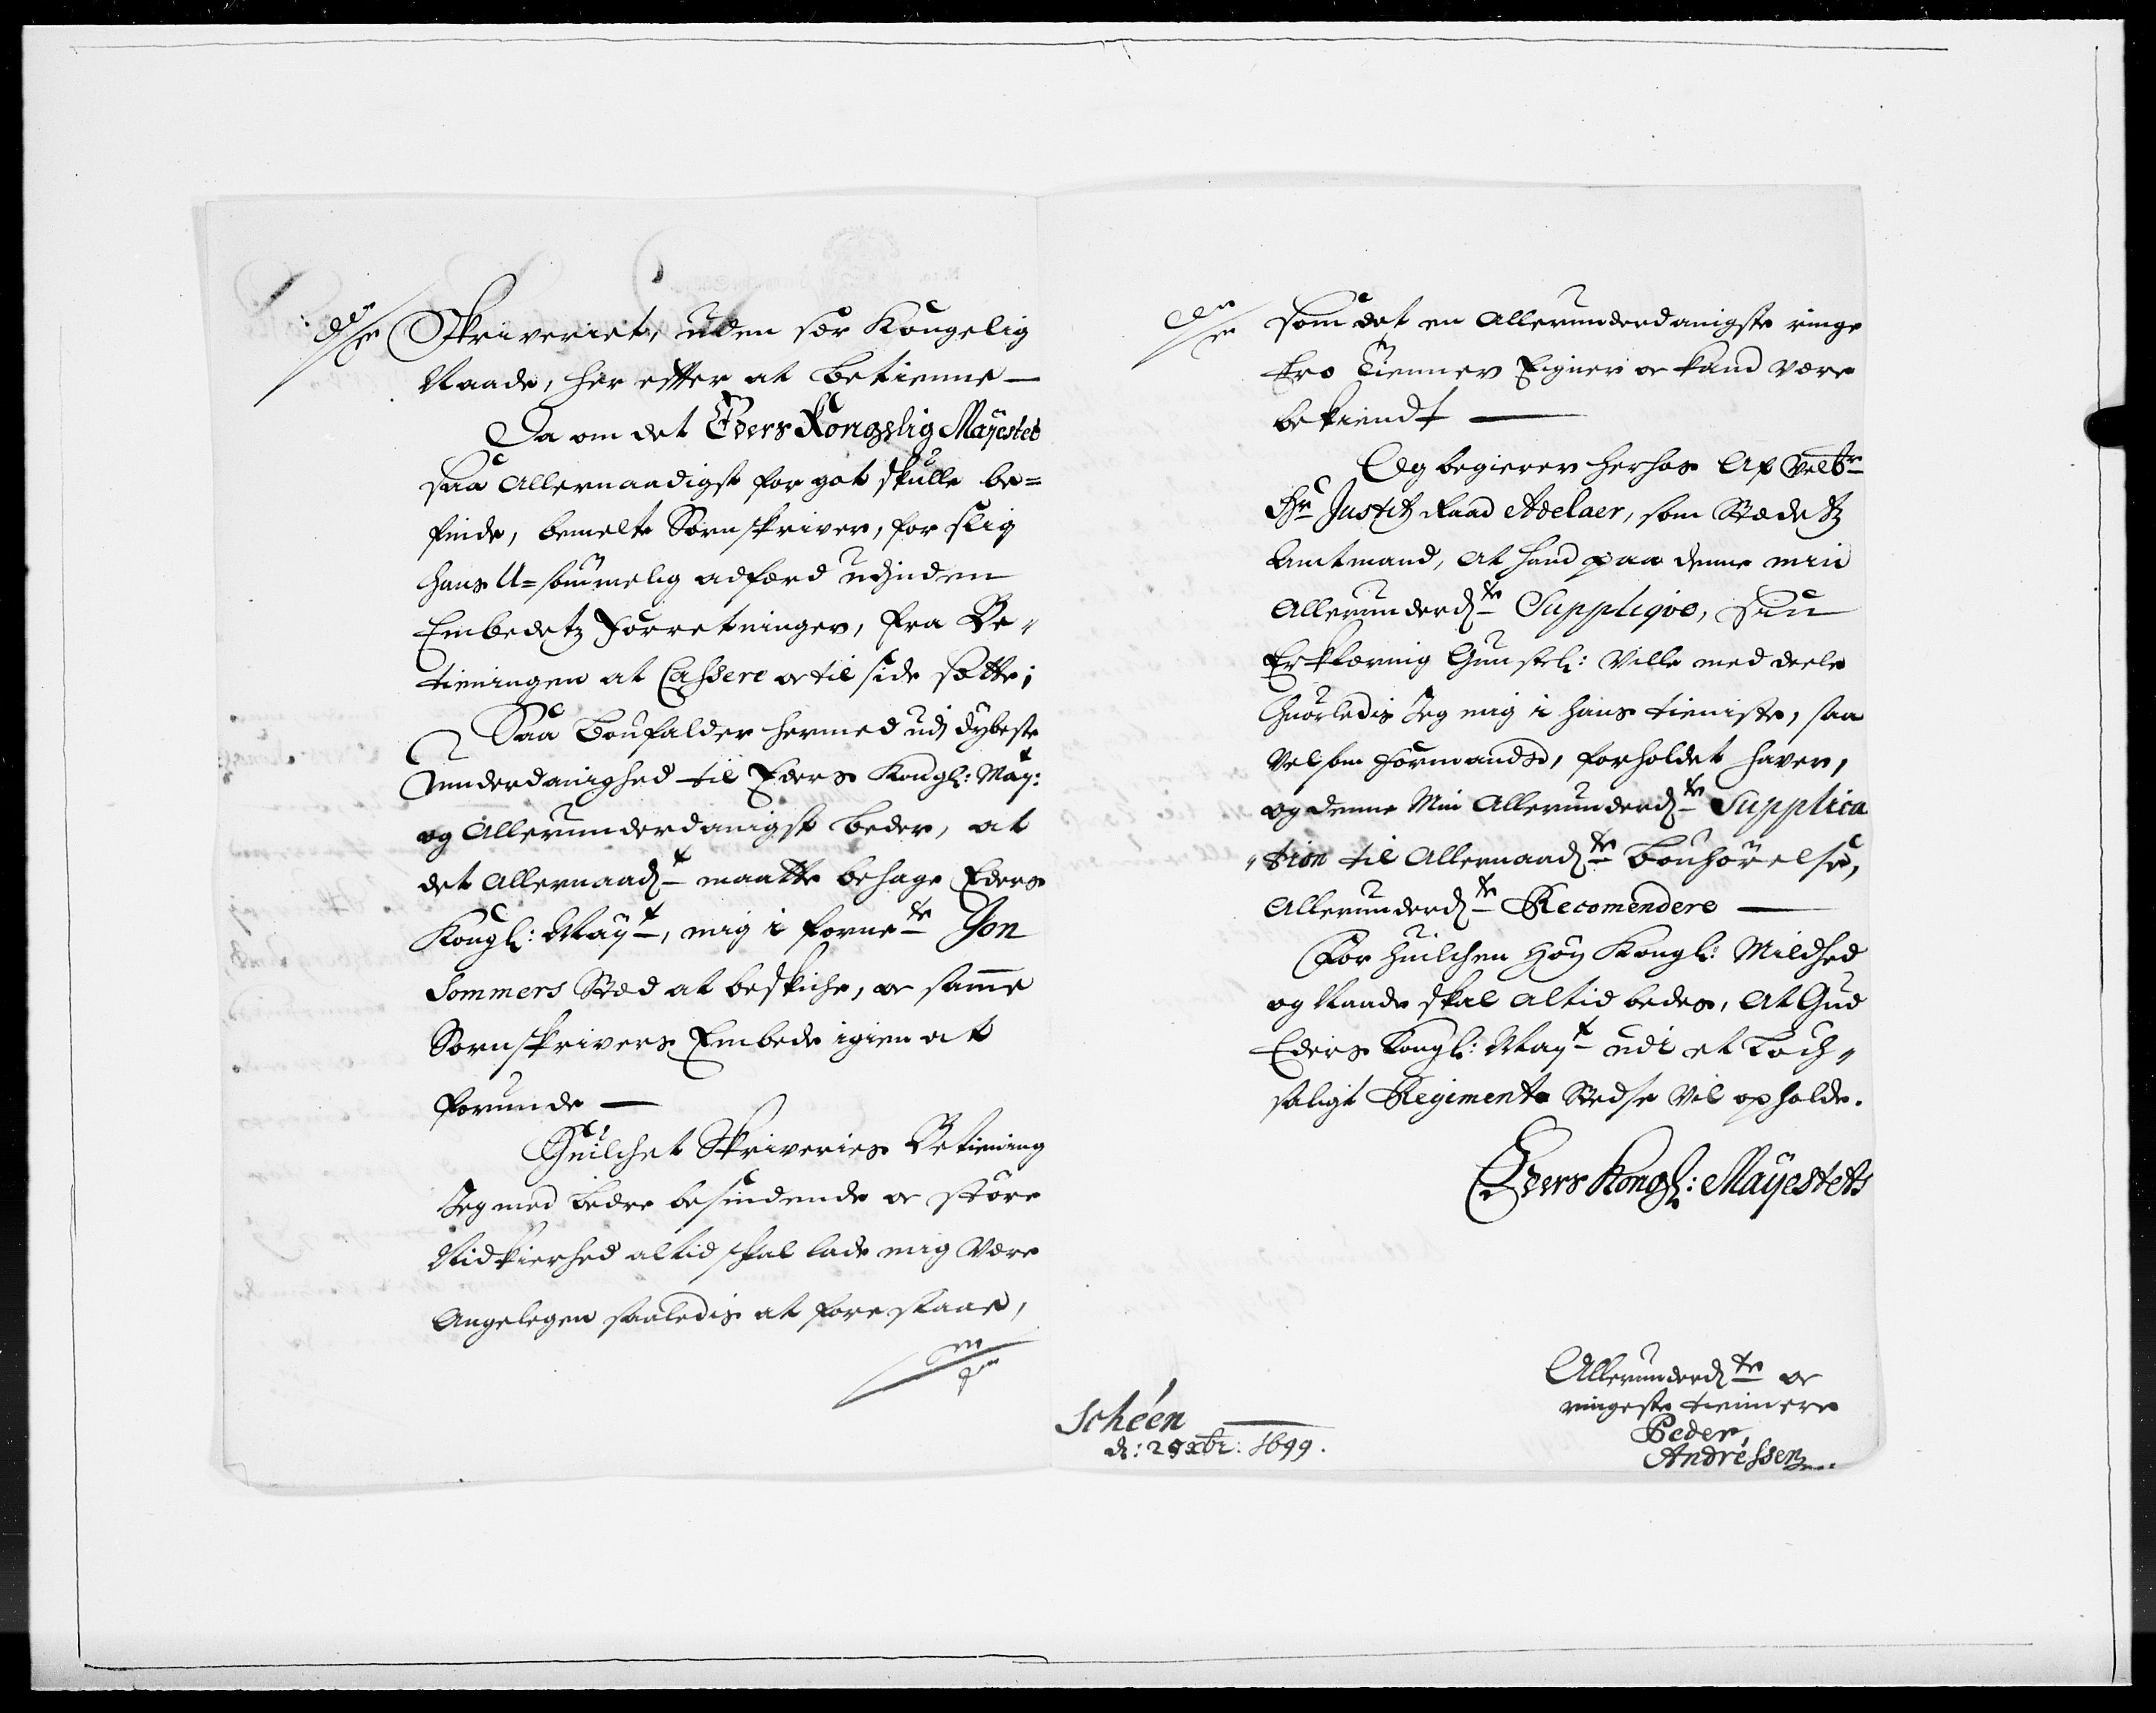 Skriveriet, uden sær Kongelig
Naade, her effter at betienne —
Da om det Eders Kongelig Mayestet
saa Allernaadigst for got skulle be=
finde, bemelte Sornskriver, for slig
hans U=sømmelig adfærd udj inden
Embedetz Forretninger, fra Be„
tieningen at Cassere og til side sette;
Saa Bønfalder hermed udj dybeste
underdanighed til Eders Kongl: Maÿt:
og Allerunderdanigst beder, at
det Allernaadt maatte behage Eders
Kongl: Maÿt, mig i fornefte Jon
Sommers Sted at beskiche, og samme
Sornskrivers Embede igien at
forunde —
Huilchet Skriveries Betiening
Jeg med bedre besindende og større
Nidkierhed altid skal lade mig være
Angelegen saaledis at forestaae,
som det en Allerunderdanigste ringe
tro Tienner Eigner og kand være
bekiendt —
Og begierer herhos Af Velbr
Hr Justitz Raad Adelaer, som Stedetz
Amtmand, At hand paa denne min
Allerunderdte Suppliqve, sin
Erklæring Gunstl: Ville med deele
huorledis Jeg mig i hans tieniste, saa
vel som Formands, forholdet haver,
og denne Min Allerunderdte Supplica
„tion til Allernaadte Bønhørelse,
Allerunderdte Recomendere —
For huilchen Høy Kongl: Mildhed
og Naade skal altid bedes, At Gud
Eders Kongl: Mayt udi et Lych„
saligt Regimente Stedse vil opholde.
Eders Kongl: Maÿestets
Allerunderdte og
ringeste tiennere
Peder
Andréssen
Schéen
d: xbr: 1699.